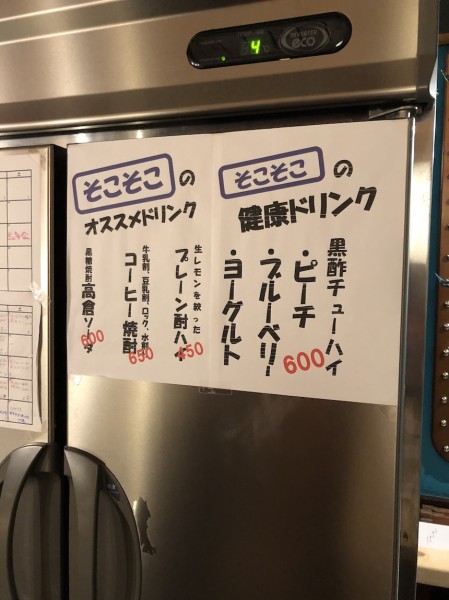 4
INVERTER
eco
そこそこの
健康ドリンク
黒酢チューハイ
・ピーチ
・ブルーベリー
・ヨーグルト
600
そこそこの
オススメドリンク
生レモンを絞った
プレーン酎ハイ
450
牛乳割、豆乳割、ロック、水割
コーヒー焼酎
650
黒糖焼酎
高倉ソーダ
600